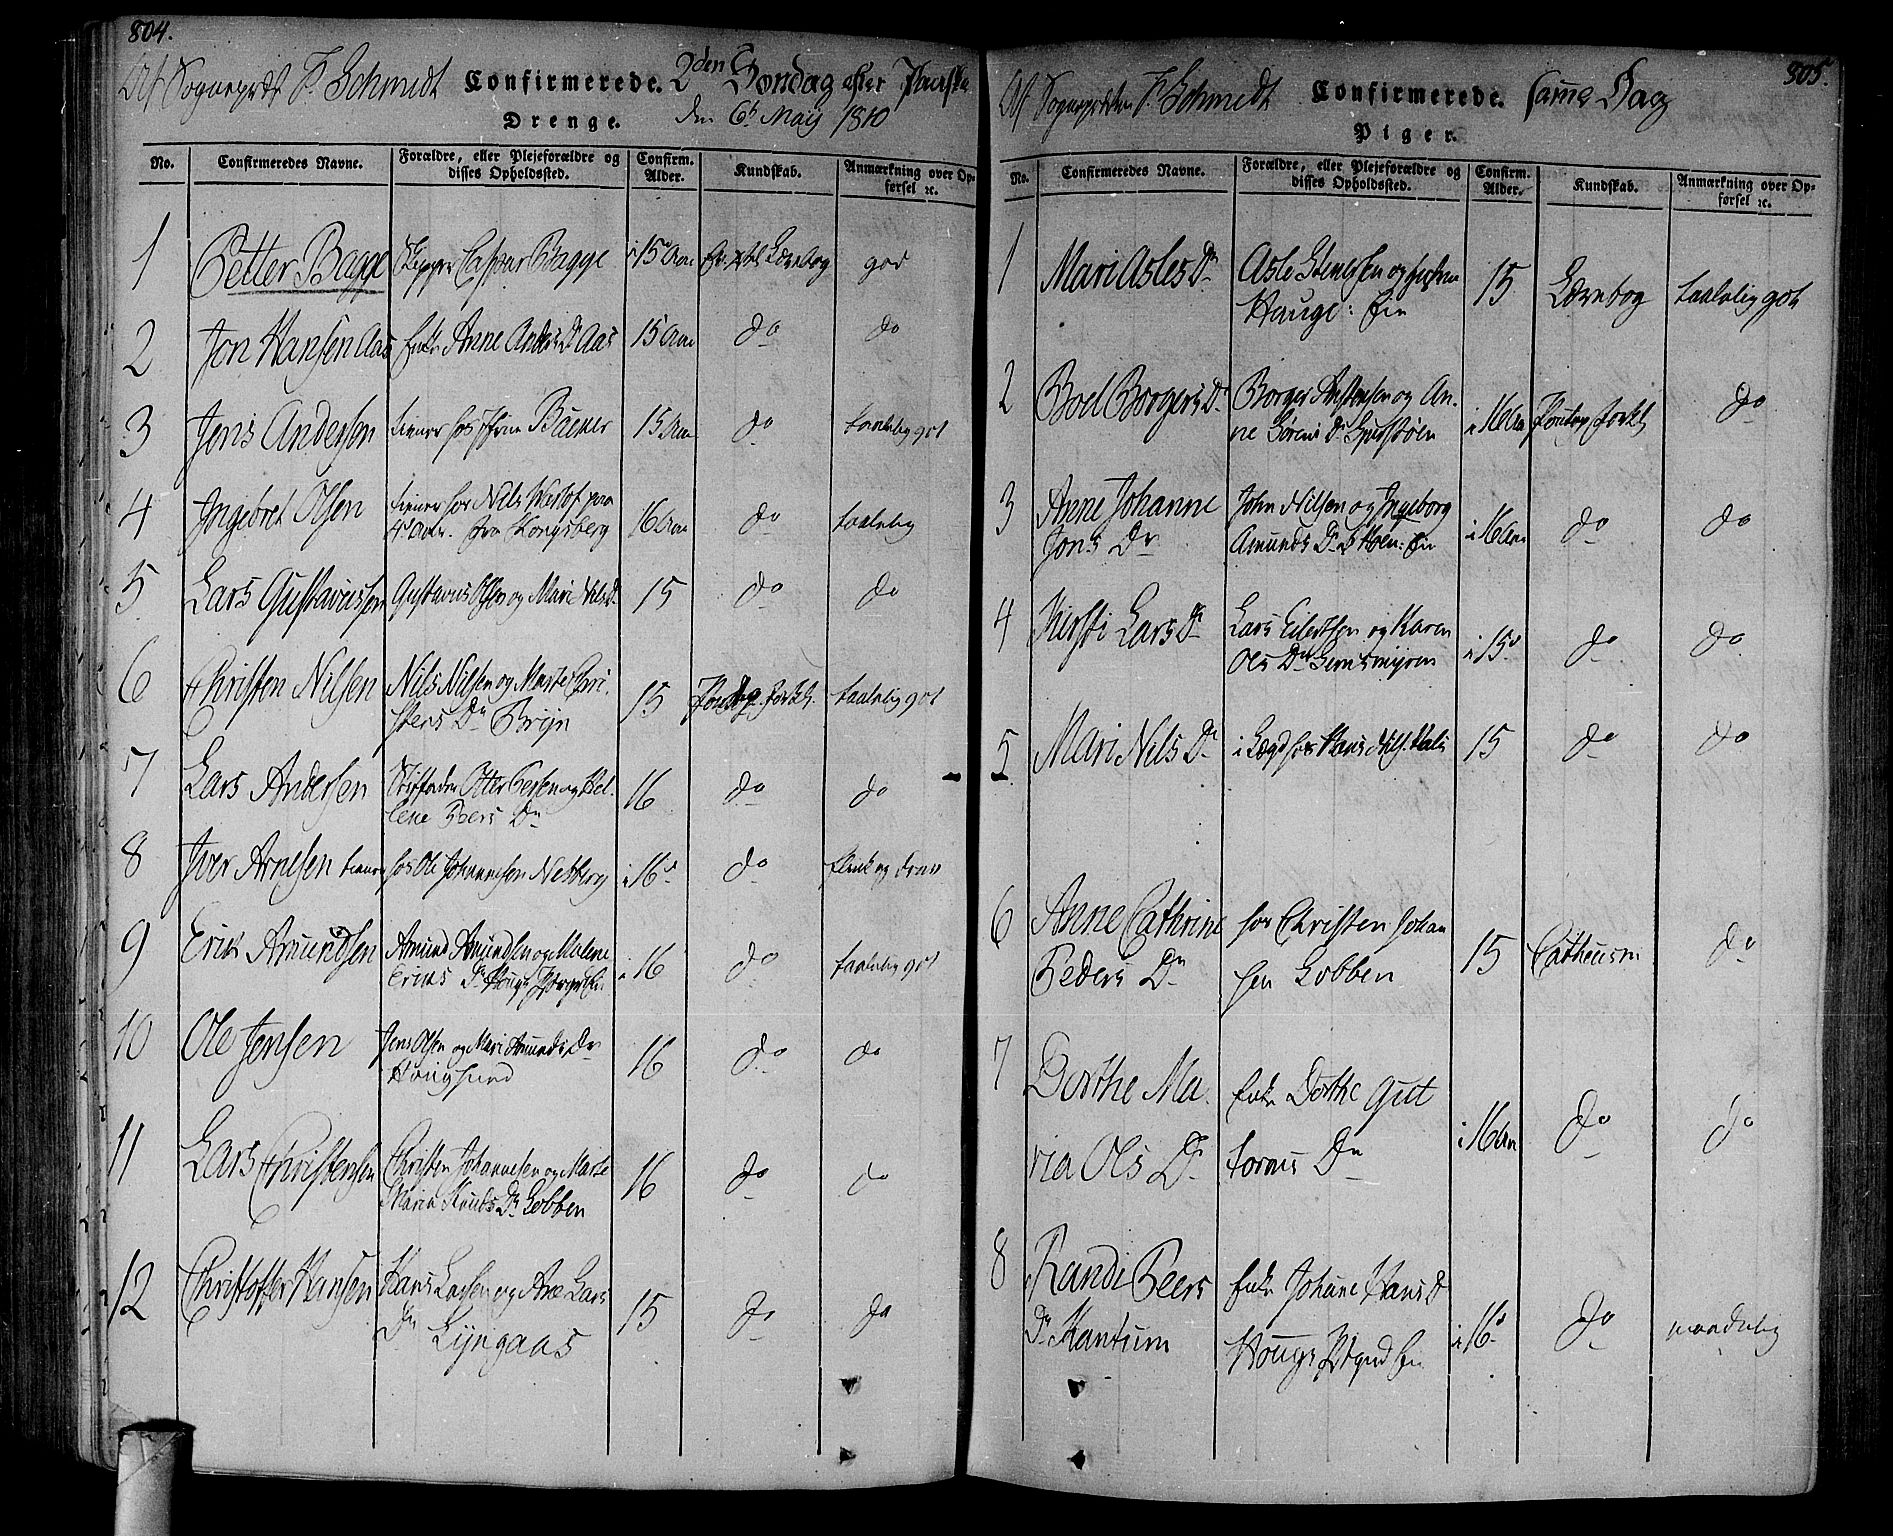 804.
Af Sognepræst F. Schmidt Confirmerede. 2den Søndag efter Paaske
Drenge. den 6t Maij 1810
No. Confirmeredes Navne. Forældre, eller Plejeforældre og disses Opholdsted. Confirm. Alder. Kundskab. Anmærkning over Opførsel ꝛc.
1 Petter Bagge Skipper Caspar Bagge i 15 Aar Lærebog god
2 Jon Hansen Aas Enke Anne Anders Dr Aas 15 Aar do do
3 Jens Andersen tiener hos 15 Aar do taalelig got
4 Ingebret Olsen tiener hos Nils paa
fra Kongsberg 16 Aar do taalelig
5 Lars Gustavussen Gustavus Olsen og Marie Nils D. 15 do do
6 Christen Nilsen Nils Nilsen og Marte Chri-
stens Dr Bryn 15 taalelig got
7 Lars Andersen Stiffader Otter Persen og Hel-
lene Peers Dr 16 do do
8 Iver Arnesen tiener hos Ole Johannesen Nedberg i 16 do flink og
9 Erik Amundsen Amund Amundsen og Malene
Eriks Dr i 16 do taalelig got
10 Ole Jensen Jens Olsen og Mari Amunds Dr
Hougsund 16 do do
11 Lars Christensen Christen Johannesen og Marte
Maria Knuds Dr Lobben 16 do do
12 Christoffer Hansen Hans Larsen og Ane Lars
Dr Lyngaas 15 do do
805.
Af Sognepræsten F. Schmidt Confirmerede. samme Dag
Piger.
No. Confirmeredes Navne. Forældre, eller Plejeforældre og disses Opholdsted. Confirm. Alder. Kundskab. Anmærkning over Opførsel ꝛc.
1 Mari Asles Dr Asle Stenersen og
Hauge: Eie 15 Lærebog taalelig got
2 Boel Borgers Dr Borger Christensen og An-
ne Sørens Dr i 16 Aar do
3 Anne Johanne
Jons Dr John Nilsen og Ingeborg
Amunds Dr i 16 Aar do do
4 Kirsti Lars Dr Lars Eilertsen og Karen
Ols Dr i 15 do do
5 Mari Nils Dr i Lægd hos Hans Nils. 15 do do
6 Anne Cathrine
Peders Dr hos Christen Johan
sen Lobben 15 Cathecism do
7 Dorthe Ma-
ria Ols Dr Enke Dorthe Gut
torms Dr i 16 Aar do do
8 Randi Peers
Dr Mantum Enke Johane Hans D
i 16 do maadelig